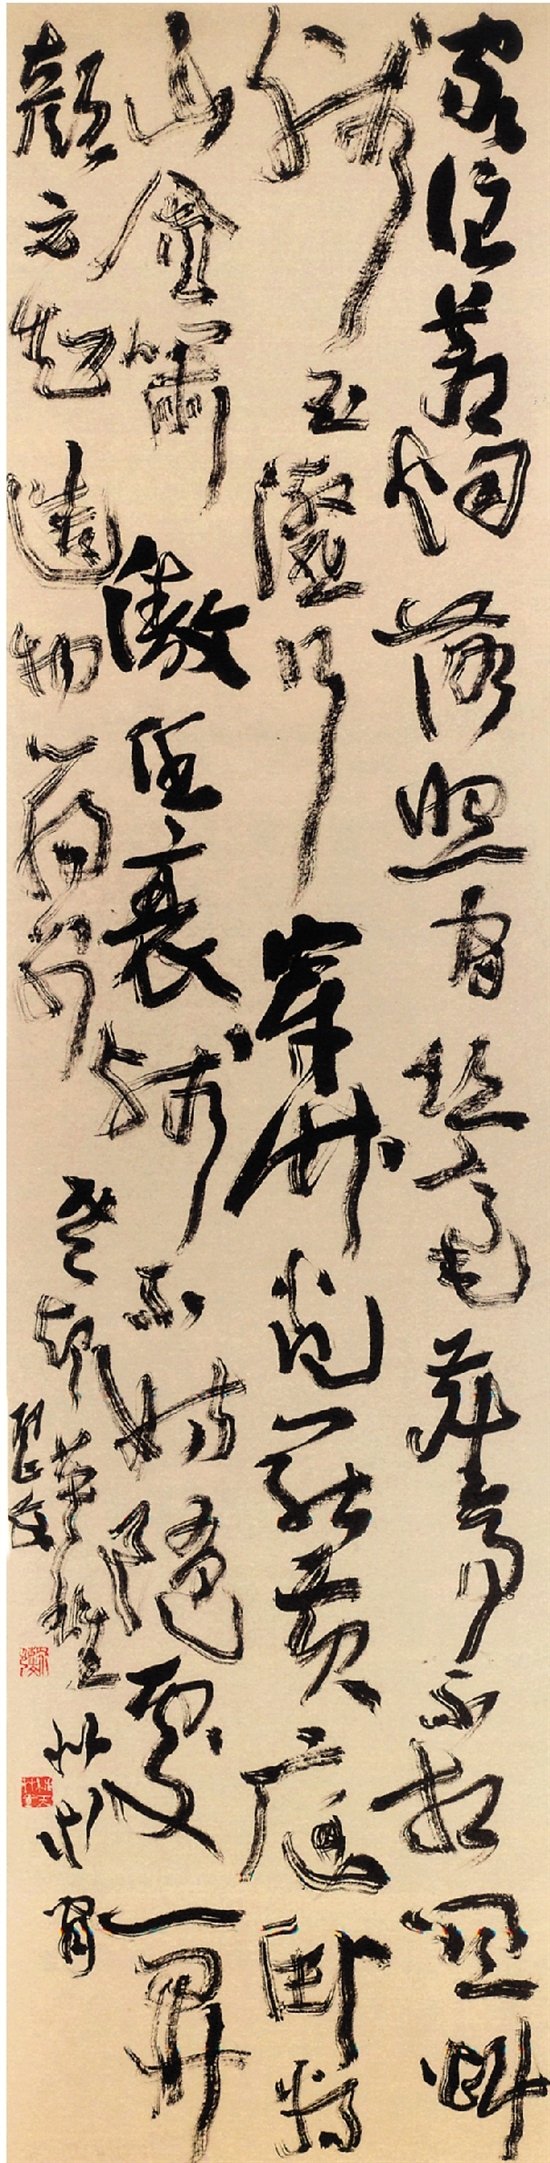 家住蒼烟落照間丝毫塵事不相關斟
殘玉瀣行穿竹卷罷黃庭卧看
山貪嘯傲任衰殘不妨隨處一開
顏元知造物心腸别
老却英雄似等閒